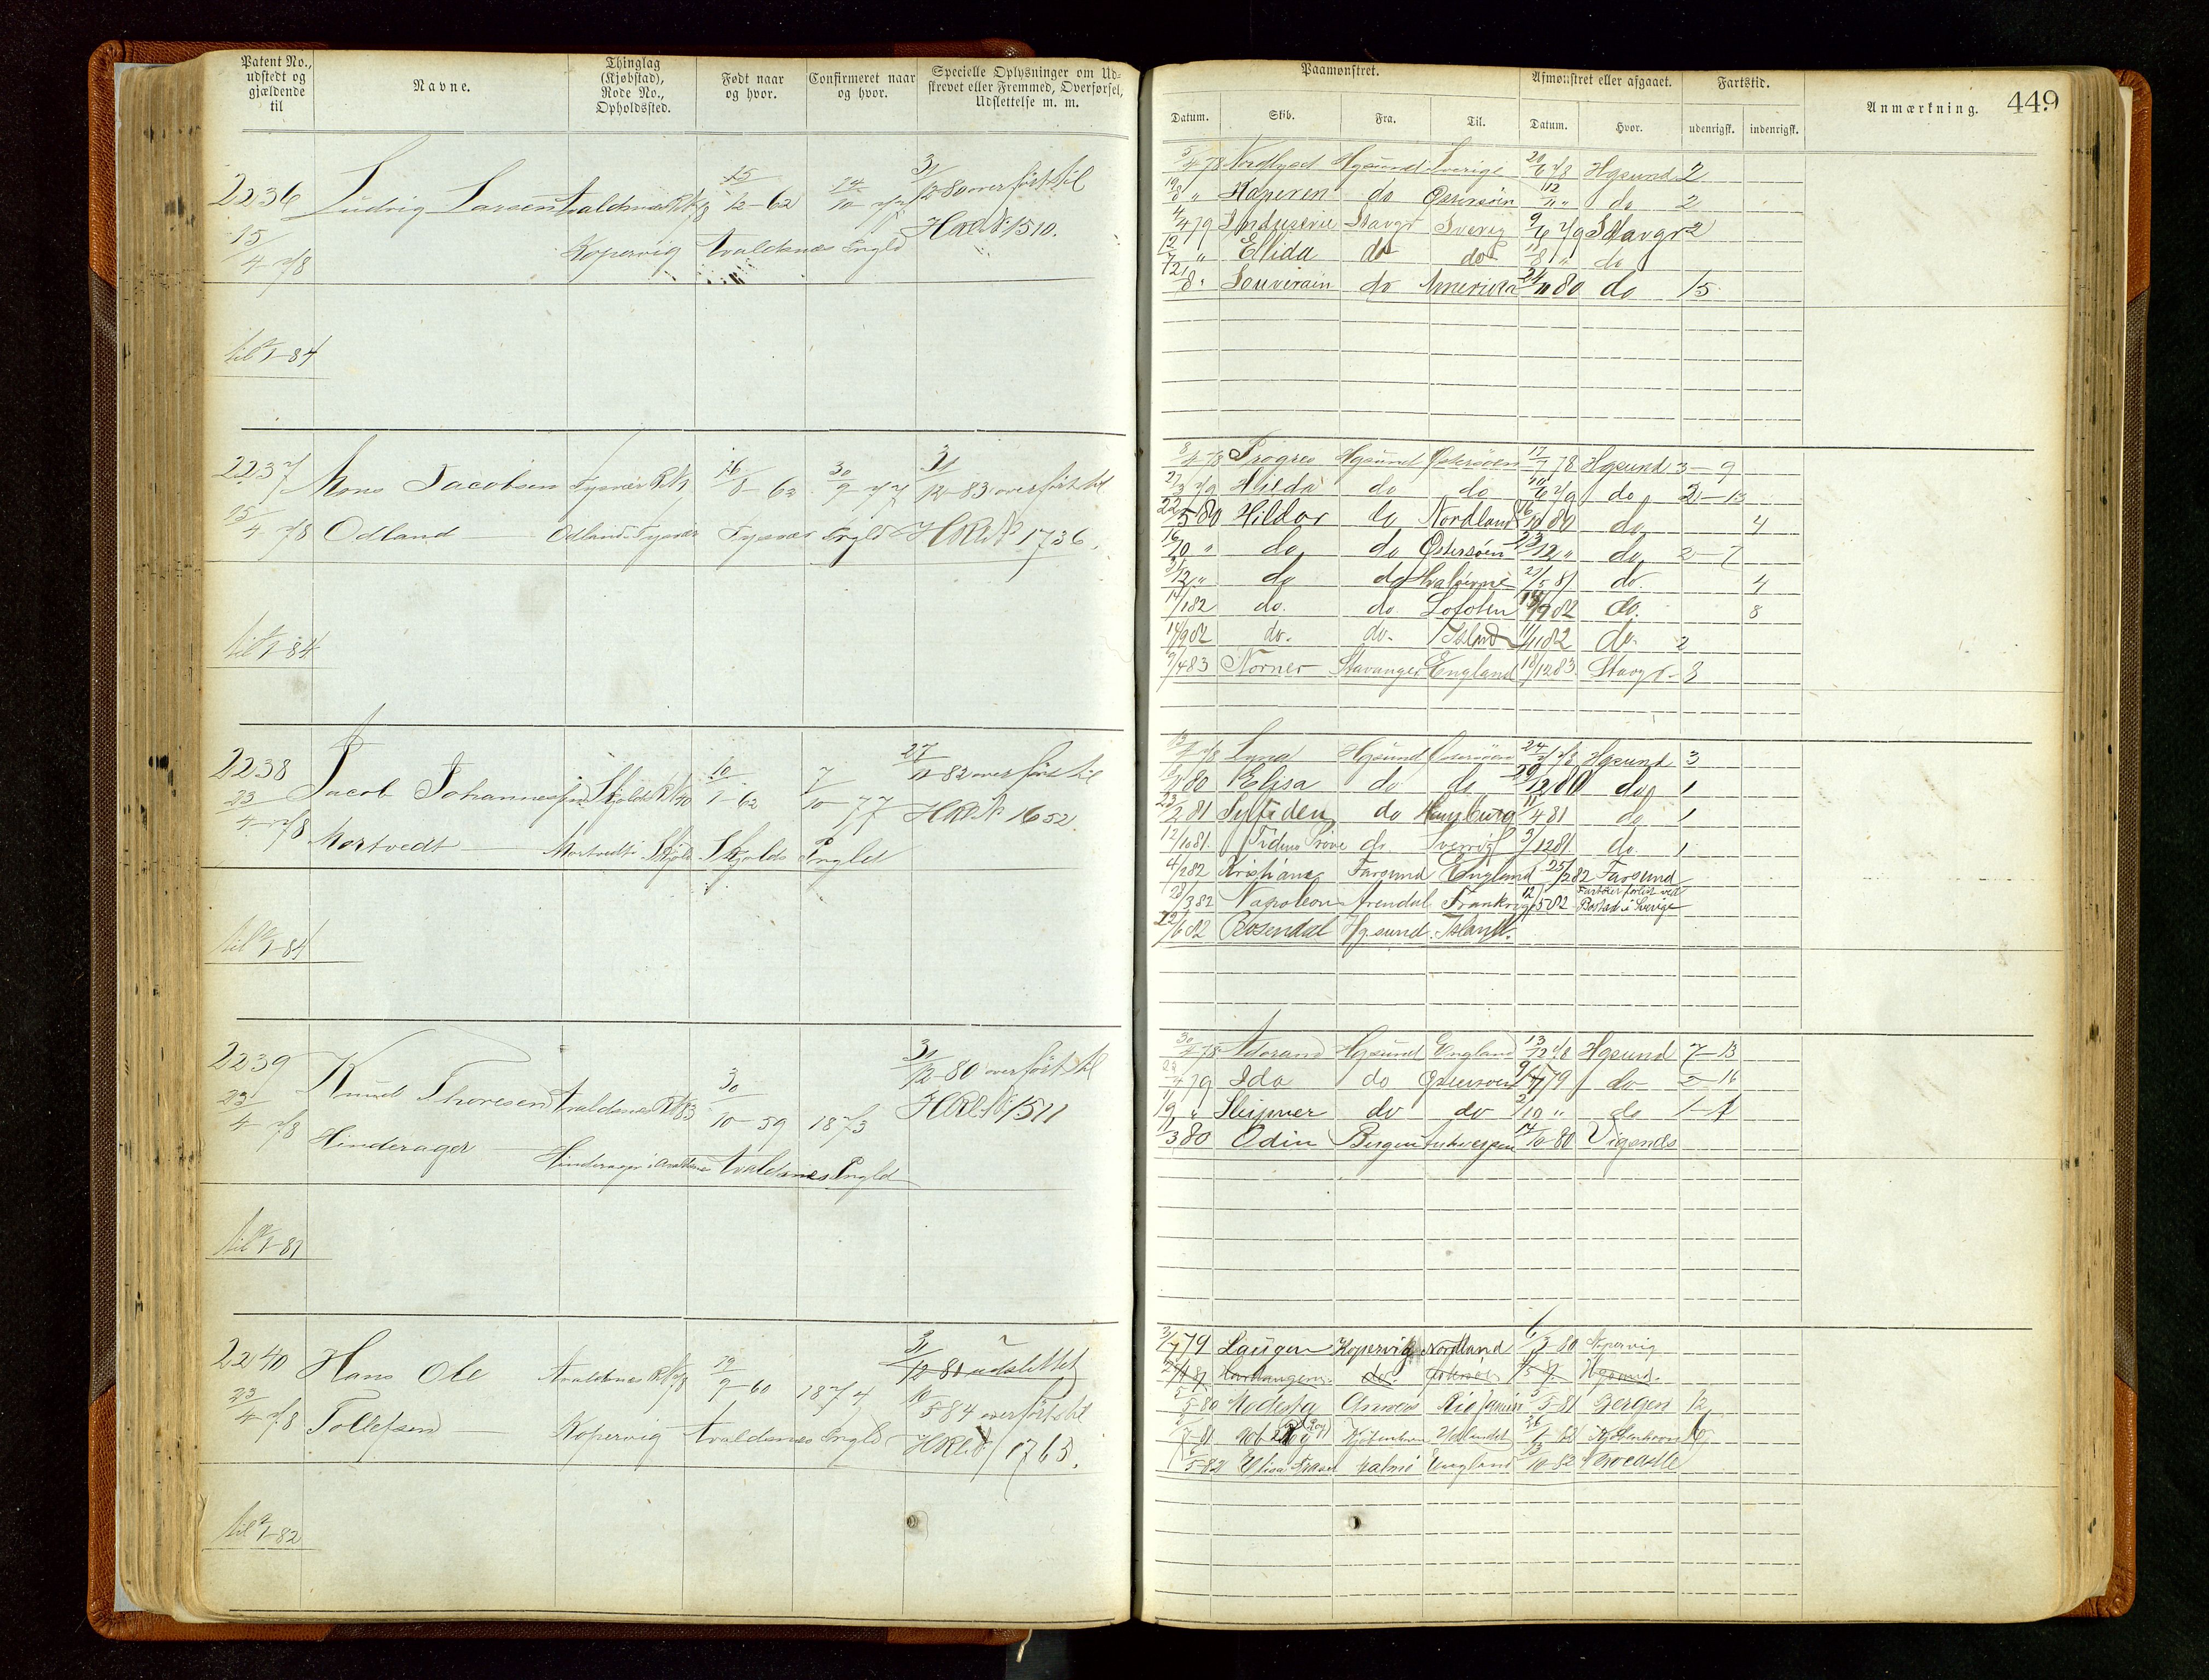 Patent No., udstedt og gjældende til
Navne.
Thinglag (Kjøbstad), Rode No., Opholdssted.
Født naar og hvor.
Confirmeret naar og hvor.
Specielle Oplysninger om Udskrevet eller Fremmed, Overførsel, Udslettelse m. m.
2236 Ludvig Larsen Avaldsnes 15/12-62 14/10 77 31/12 80 overført til
15/4-78 Kopervig Avaldsnes Engld HRl.No 1510.
til 1/1-84
2237 Mons Jacobsen Tysvær 26/8-62 30/9-77 31/12-83 overført til
15/4 78 Odland Odland i Tysvær Tysvær Engld HRl.No 1736.
til 1/1-84
2238 Jacob Johannessen Skjolds 10/1-62 7/10-77 27/11-82 overført til
23/4-78 Mortvedt Mortvedt i Skjold Skjolds Engld HRl.No 1652
til 1/1-84
2239 Knud Thoresen Avaldsnes 30/10-59 1873 31/12-80 overført til
23/4-78 Hinderager Hinderager i Avaldsnes Avaldsnes Engld HRl.No 1511
til 1/1-81
2240 Hans Ole Avaldsnes 19/9-60 1874 31/12-81 udslettet
23/4-78 Tollefsen Kopervig Avaldsnes Engld 10/5 84 overført til
HRl.No 1763.
til 1/1-82
Paamønstret.
Afmønstret eller afgaaet.
Fartstid.
Anmærkning. 449
Datum. Skib. Fra. Til. Datum. Hvor. udenrigsk. indenrigsk.
5/4 78 Nordlyset Hgsund Sverige 20/6 78 Hgsund 2
19/8 " do Østersøen 12/11 " do 2
4/4 79 Industrie Stavgr Sverig 9/6 79 Stavgr 2
12/7 " Elida do do /8 " do
12/8 " Souverain do Amerika 24/11 80 do 15
8/4 78 Progres Hgsund Østersøen 17/7 78 Hgsund 3-9
27/3 79 Hilda do do 10/6 79 do 2-13
22/5 80 Hildor do Nordland 16/10 80 do 4
16/10 " do do Østersøen 23/12 " do 2-7
31/12 " do do 21/5 81 do. 4
14/1 82 do. do Lofoten 14/9 82 do. 8
14/9 82 do. do. Island 11/11 82 do. 2
9/4 83 Norner Stavanger England 18/12 83. Stavgr. 8
Hgsund Østersøen 24/7 78 Hgsund 3
80 Elisa do do 29/12 80 do 1
23/2 81 Sylfiden do Hamburg 11/4 81 do 1
12/10 81. Tidens Prøve do. Sverrig 9/12 81. do. 1
4/2 82 Kristiane Farsund England 25/2 82 Farsund
28/3 82 Napoleon Arendal Frankrige 12/5 82 Fartøiet forlist ved Bastad i Sverige
22/6 82 Rosendal Hgsund. Island.
30/4 78 Adorand Hgsund England 13/12 78 Hgsund 7-13
22/4 79 Ida do Østersøen 9/7 79 do 2-16
1/9 " Sleipner do do 2/10 " do 1-1
11/3 80 Odin Bergen Antwerpen 14/10-80 Vigenes
3/7 79 Laugen Kopervig Nordland 6/3-80 Kopervig
do. Hgsund.
5/5-80 Modesta Rio Janeiro 5/5-81 Bergen 12
Rob Roy Kjøbenhavn Udlandet Kjøbenhavn
5-82 Elisa England 13/10-82 Newcastle